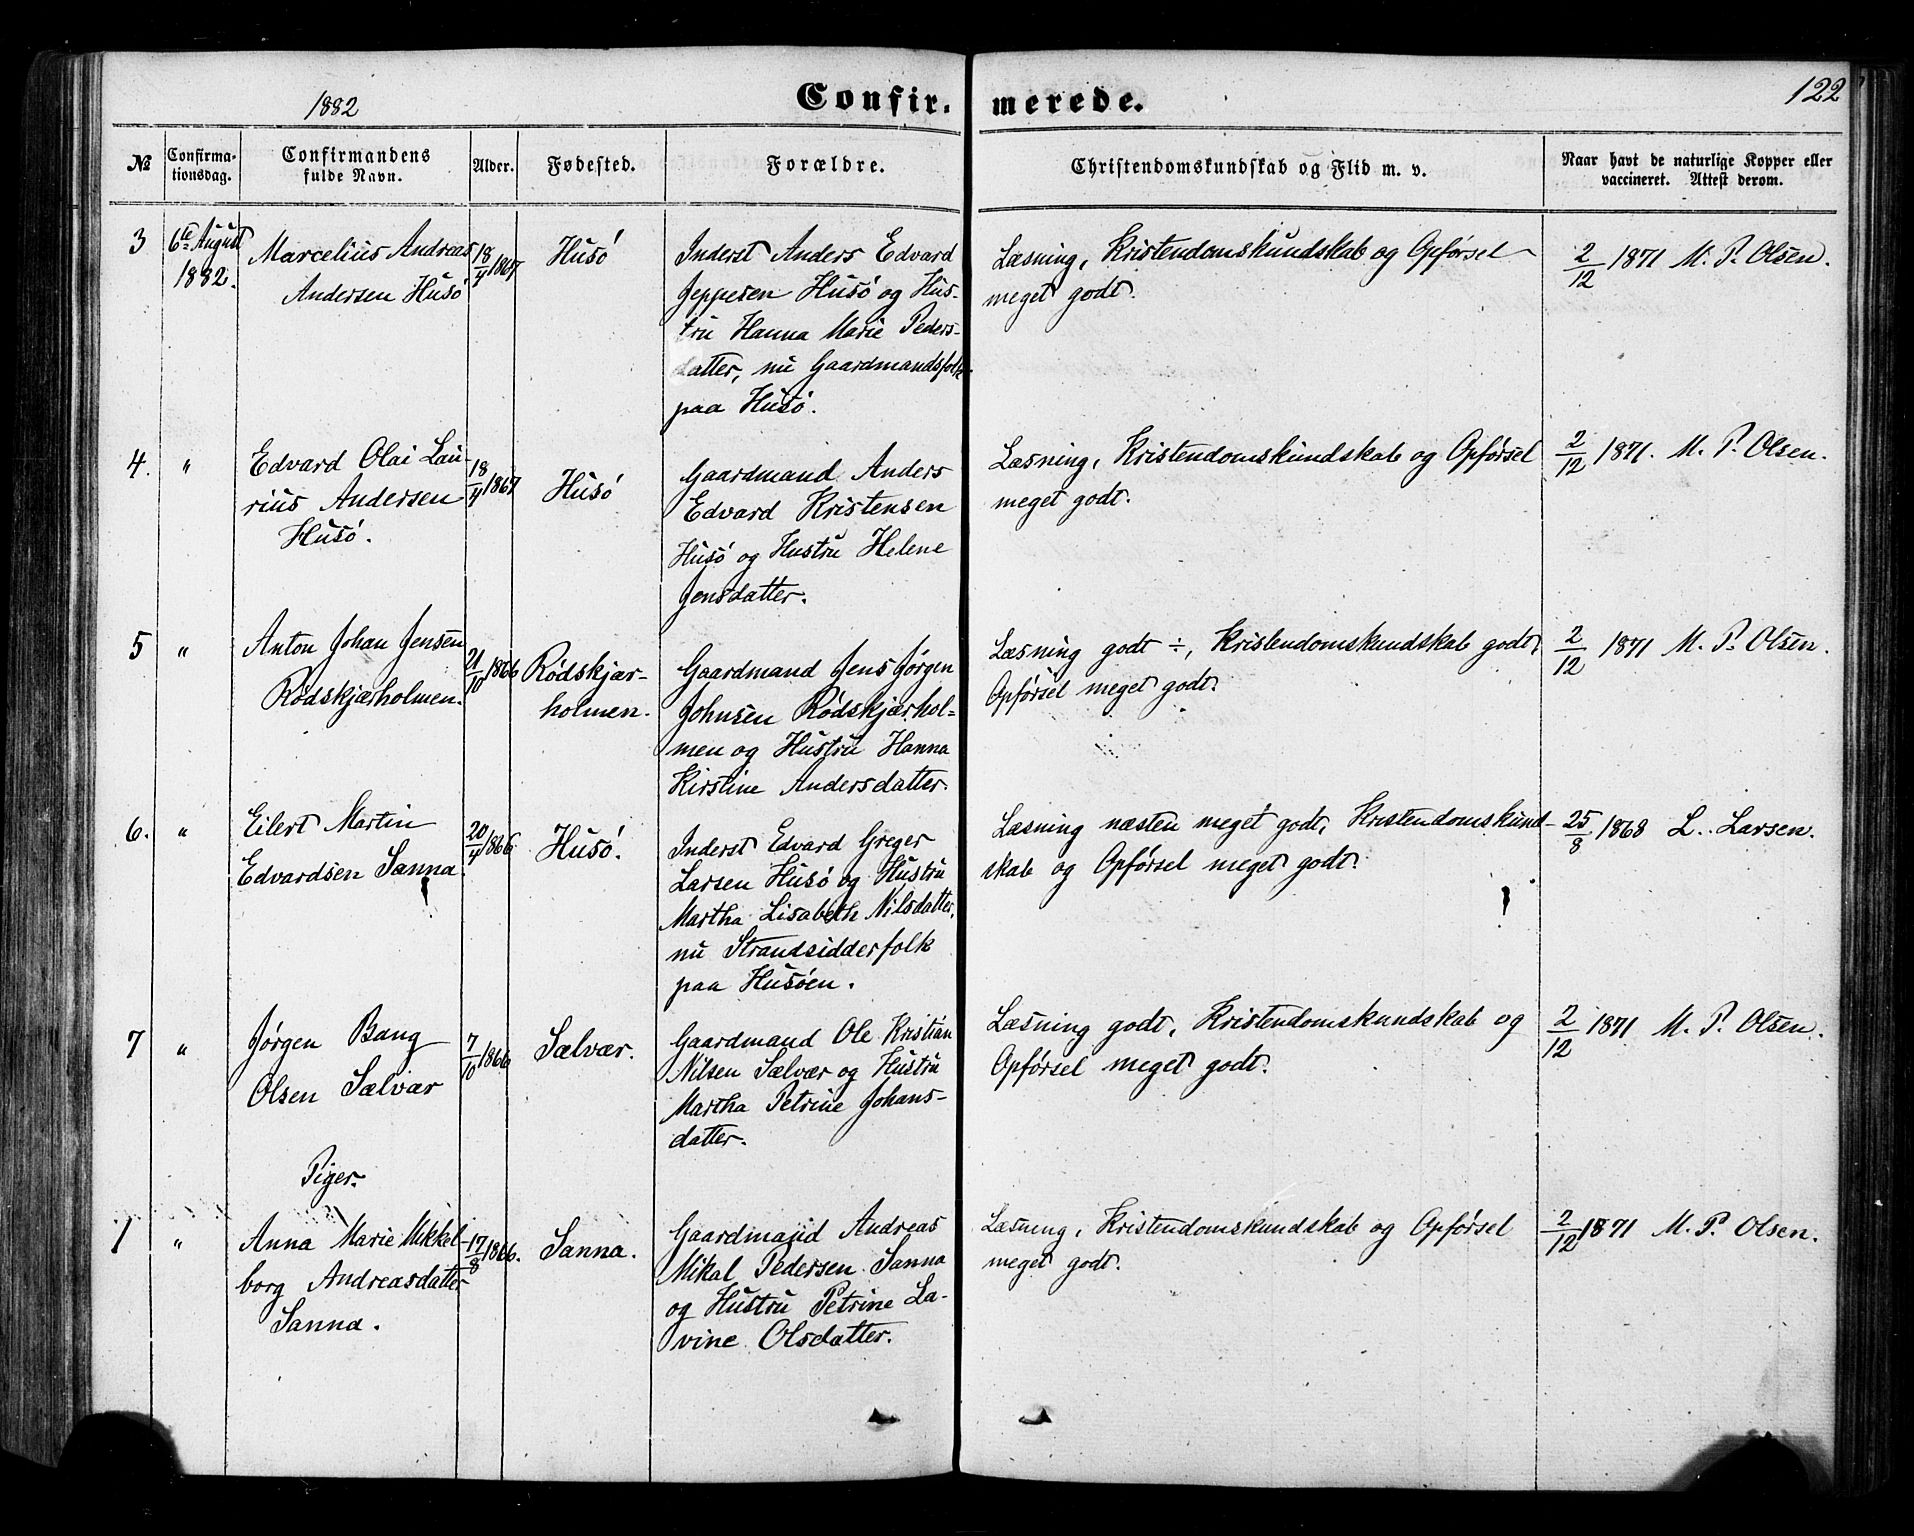 1882 Confirmerede. 122
№ Confirmationsdag. Confirmandens fulde Navn. Alder. Fødested. Forældre. Christendomskundskab og Flid m. v. Naar havt de naturlige Kopper eller vaccineret. Attest derom.
3 6te August 1882. Marcelius Andreas Andersen Husö 18/4 1867 Husö
Inderst Anders Edvard
Jeppesen Husö og Hus-
tru Hanna Marie Peders-
datter, nu Gaardmandsfolk
paa Husö.
Læsning, Kristendomskundskab og Opførsel
meget godt.
2/12 1871 M. P. Olsen.
4. " Edvard Olai Lau-
rius Andersen
Husö.
18/4 1867 Husö
Gaardmand Anders
Edvard Kristensen
Husö og Hustru Helene
Jensdatter.
Læsning, Kristendomskundskab og Opførsel
meget godt.
2/12 1871. M. P. Olsen.
5 " Anton Johan Jensen
Rødskjærholmen.
21/10 1866 Rødskjær-
holmen.
Gaardmand Jens Jørgen
Johnsen Rødskjærhol=
men og Hustru Hanna
Kirstine Andersdatter.
Læsning godt ÷, Kristendomskundskab godt,
Opførsel meget godt.
2/12 1871 M. P. Olsen.
6. " Eilert Martin
Edvardsen Sanna
20/4 1866 Husö.
Inderst Edvard Greger
Larsen Husö og Hustru
Martha Lisabeth Nilsdatter,
nu Strandsidderfolk
paa Husöen.
Læsning næsten meget godt, Kristendomskund-
skab og Opførsel meget godt.
25/8 1868 L. Larsen.
7 " Jørgen Bang
Olsen Sælvær
7/10 1866 Sælvær.
Gaardmand Ole Kristian
Nilsen Sælvær og Hustru
Martha Petrine Johans-
datter.
Læsning godt, Kristendomskundskab og
Opførsel meget godt.
2/12 1871 M. P. Olsen.
Piger.
1 " Anna Marie Mikkel-
borg Andreasdatter
Sanna.
17/8 1866. Sanna.
Gaardmand Andreas
Mikal Pedersen Sanna
og Hustru Petrine La-
vine Olsdatter.
Læsning, Kristendomskundskab og Opførsel
meget godt.
2/12 1871 M. P. Olsen.